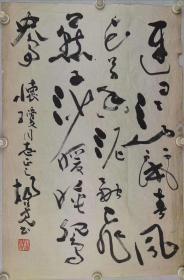 遲日江山麗春風
花草香泥融飛
燕子沙暖睡鴛
鴦 懷瓊同志正之